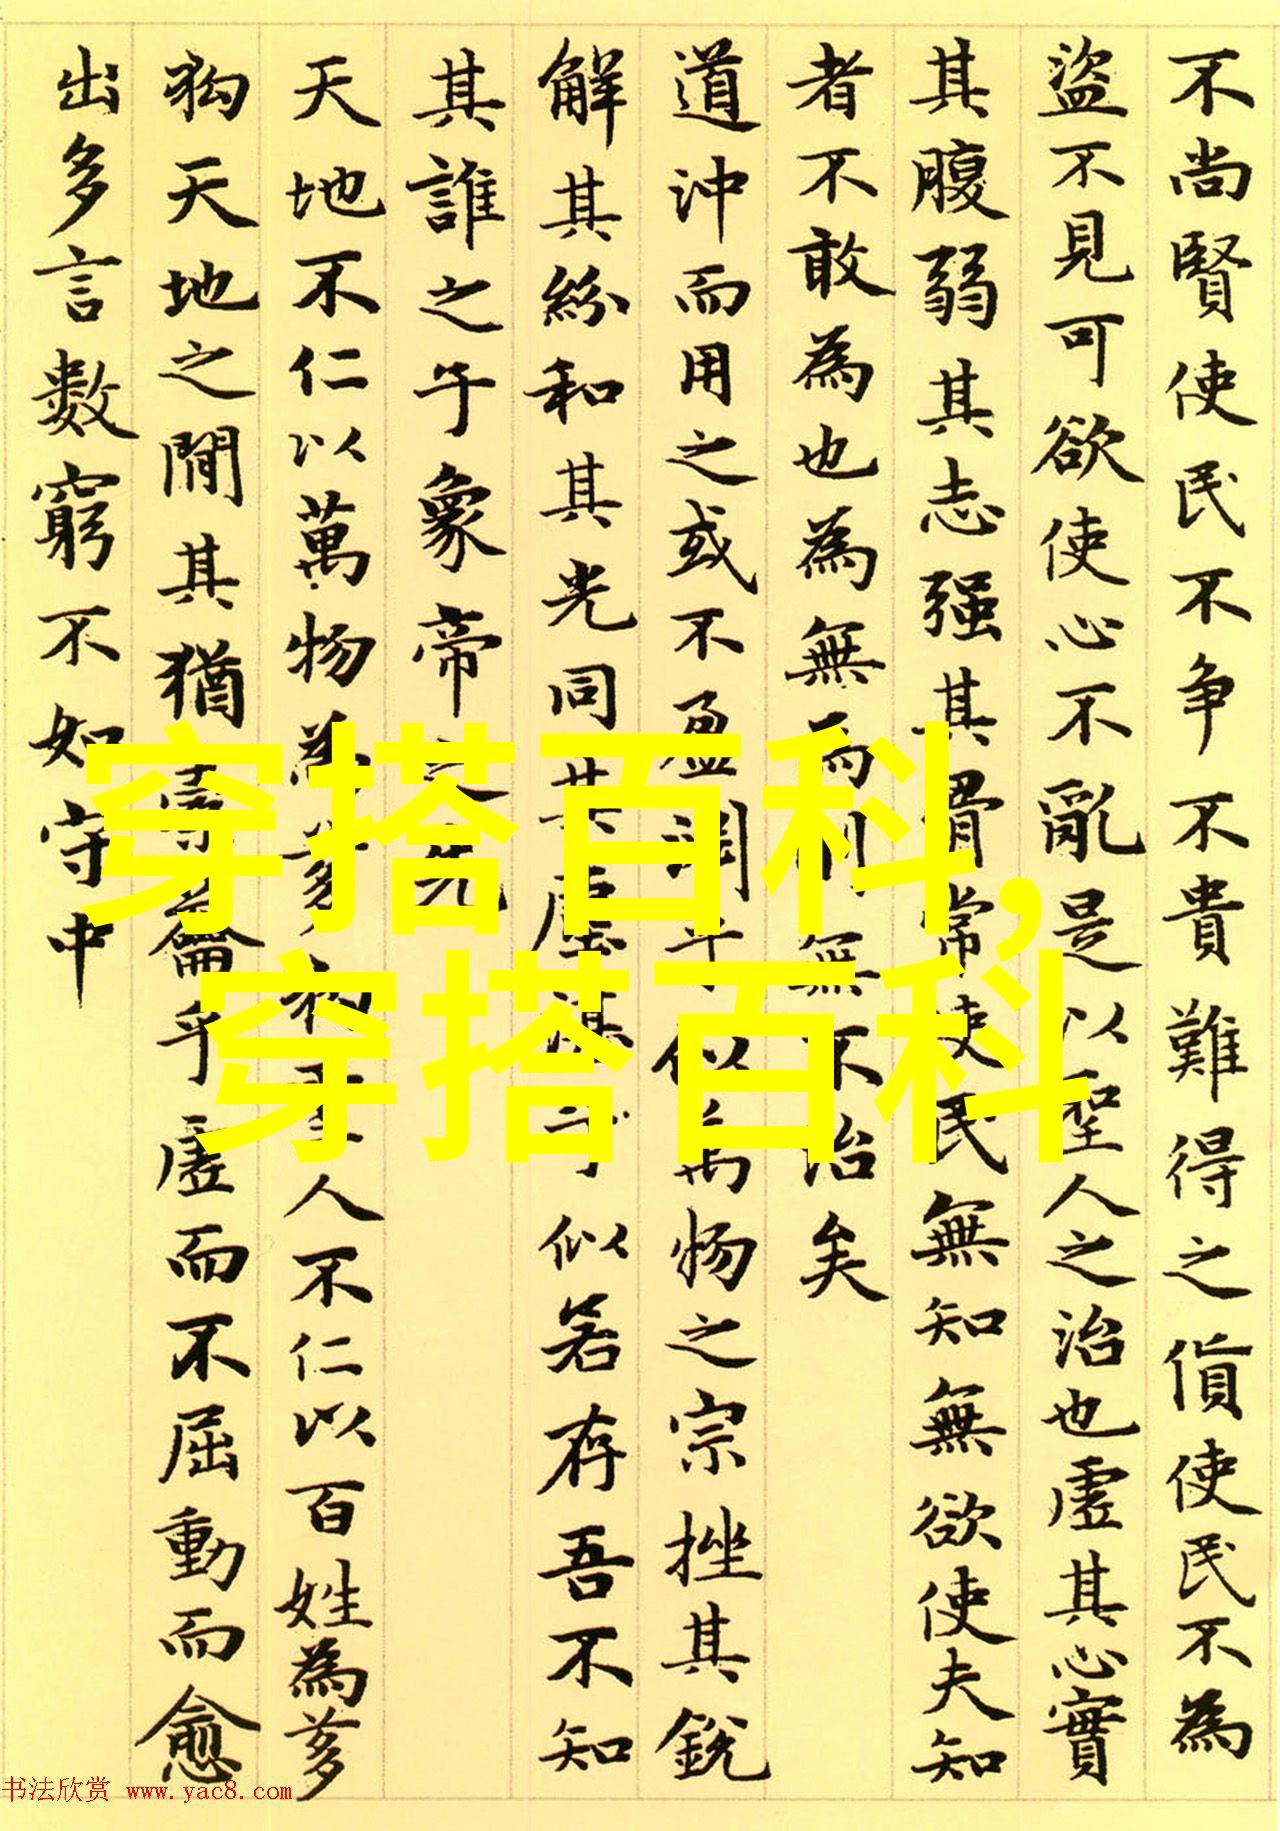 不尚賢使民不争不貴難得之貨使民不為
盜不見可欲使心不亂是以聖人之治也虛其心實
其腹弱其志强其骨常使民無知無欲使夫知
者不敢為也為無為則無不治矣
道沖而用之或不盈淵乎似萬物之宗挫其銳
解其紛和其光同其塵湛乎似若存吾不知
其誰之子象帝之先
天地不仁以萬物為芻狗聖人不仁以百姓為芻
狗天地之間其猶橐籥乎虛而不屈動而愈
出多言數窮不如守中
穿搭百科,
穿搭百科
书法欣赏 www.yac8.com